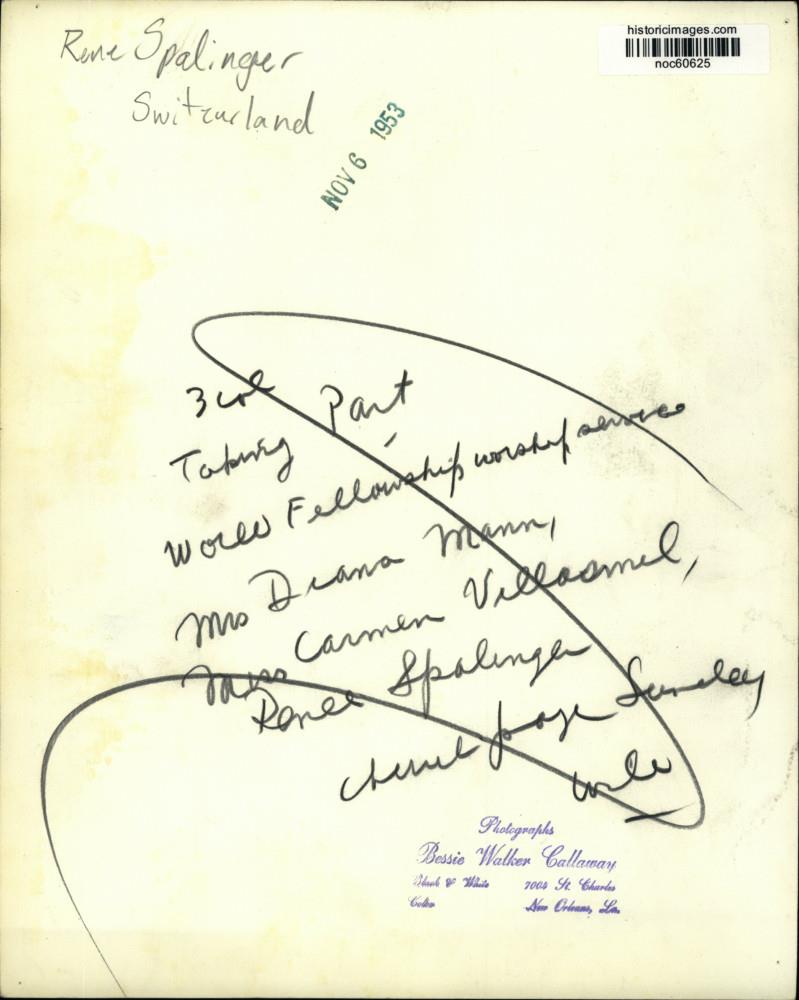 historicimages.com
noc60625
Rene Spalinger
Switzurland
NOV 6 1953
3 col
Taking Part
World Fellowship worship service
Mrs Diana Mann,
Carmen Villasmil,
Miss
Renee Spalinger
church page Sunday
Photographs
Bessie Walker Callaway
Black & White 7004 St. Charles
Color New Orleans, La.